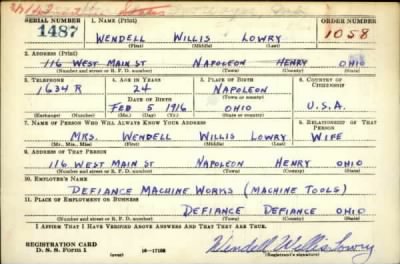 SERIAL NUMBER 1. NAME (Print) ORDER NUMBER
1487 WENDELL WILLIS LOWRY 1058
(First) (Middle) (Last)
2. ADDRESS (Print)
116 WEST MAIN ST NAPOLEON HENRY OHIO
(Number and street or R. F. D. number) (Town) (County) (State)
3. TELEPHONE 4. AGE IN YEARS 5. PLACE OF BIRTH 6. COUNTRY OF CITIZENSHIP
1634 R 24 NAPOLEON
DATE OF BIRTH (Town or county)
FEB 5 1916 OHIO U.S.A.
(Exchange) (Number) (Mo.) (Day) (Yr.) (State or country)
7. NAME OF PERSON WHO WILL ALWAYS KNOW YOUR ADDRESS 8. RELATIONSHIP OF THAT PERSON
MRS. WENDELL WILLIS LOWRY WIFE
(Mr., Mrs., Miss) (First) (Middle) (Last)
9. ADDRESS OF THAT PERSON
116 WEST MAIN ST NAPOLEON HENRY OHIO
(Number and street or R. F. D. number) (Town) (County) (State)
10. EMPLOYER'S NAME
DEFIANCE MACHINE WORKS (MACHINE TOOLS)
11. PLACE OF EMPLOYMENT OR BUSINESS
DEFIANCE DEFIANCE OHIO
(Number and street or R. F. D. number) (Town) (County) (State)
I AFFIRM THAT I HAVE VERIFIED ABOVE ANSWERS AND THAT THEY ARE TRUE.
REGISTRATION CARD
D. S. S. Form 1 (over) 16—17105 Wendell Willis Lowry
(Registrant's signature)